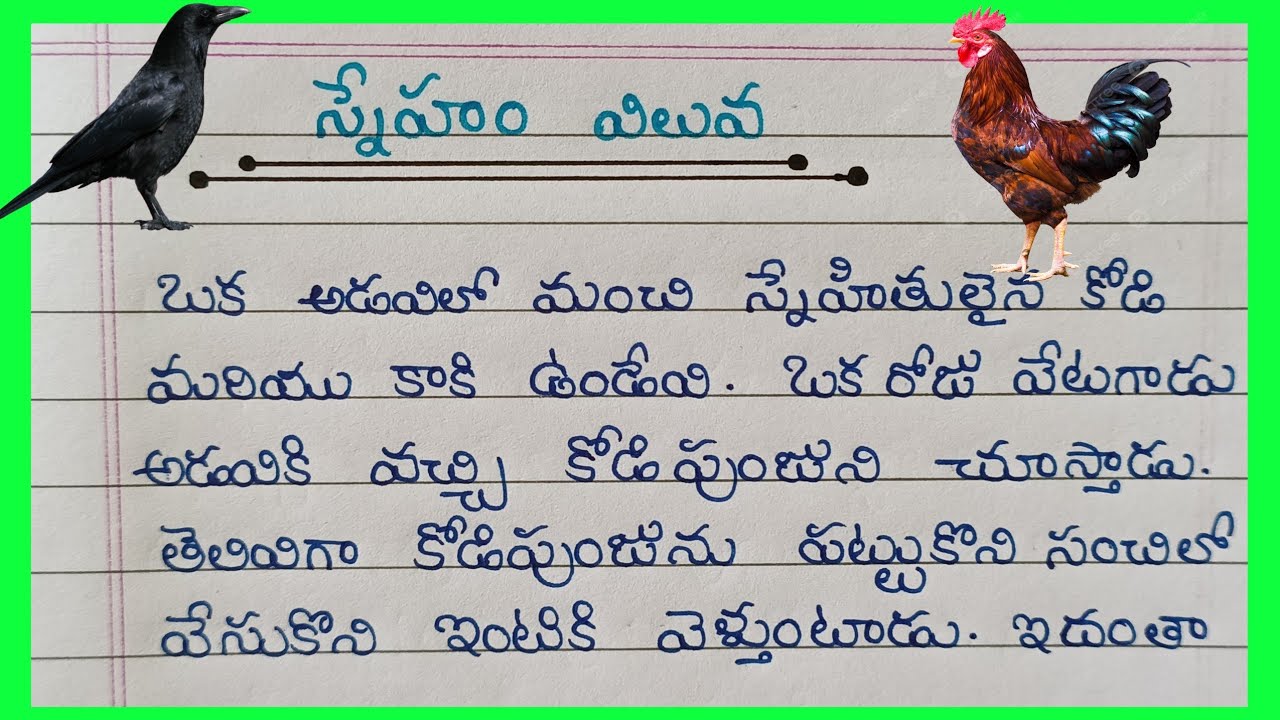 స్నేహం విలువ
ఒక అడవిలో మంచి స్నేహితులైన కోడి
మరియు కాకి ఉండేవి. ఒక రోజు వేటగాడు
అడవికి వచ్చి కోడి పుంజుని చూస్తాడు.
తెలివిగా కోడిపుంజును పట్టుకొని సంచిలో
వేసుకొని ఇంటికి వెళ్తుంటాడు. ఇదంతా